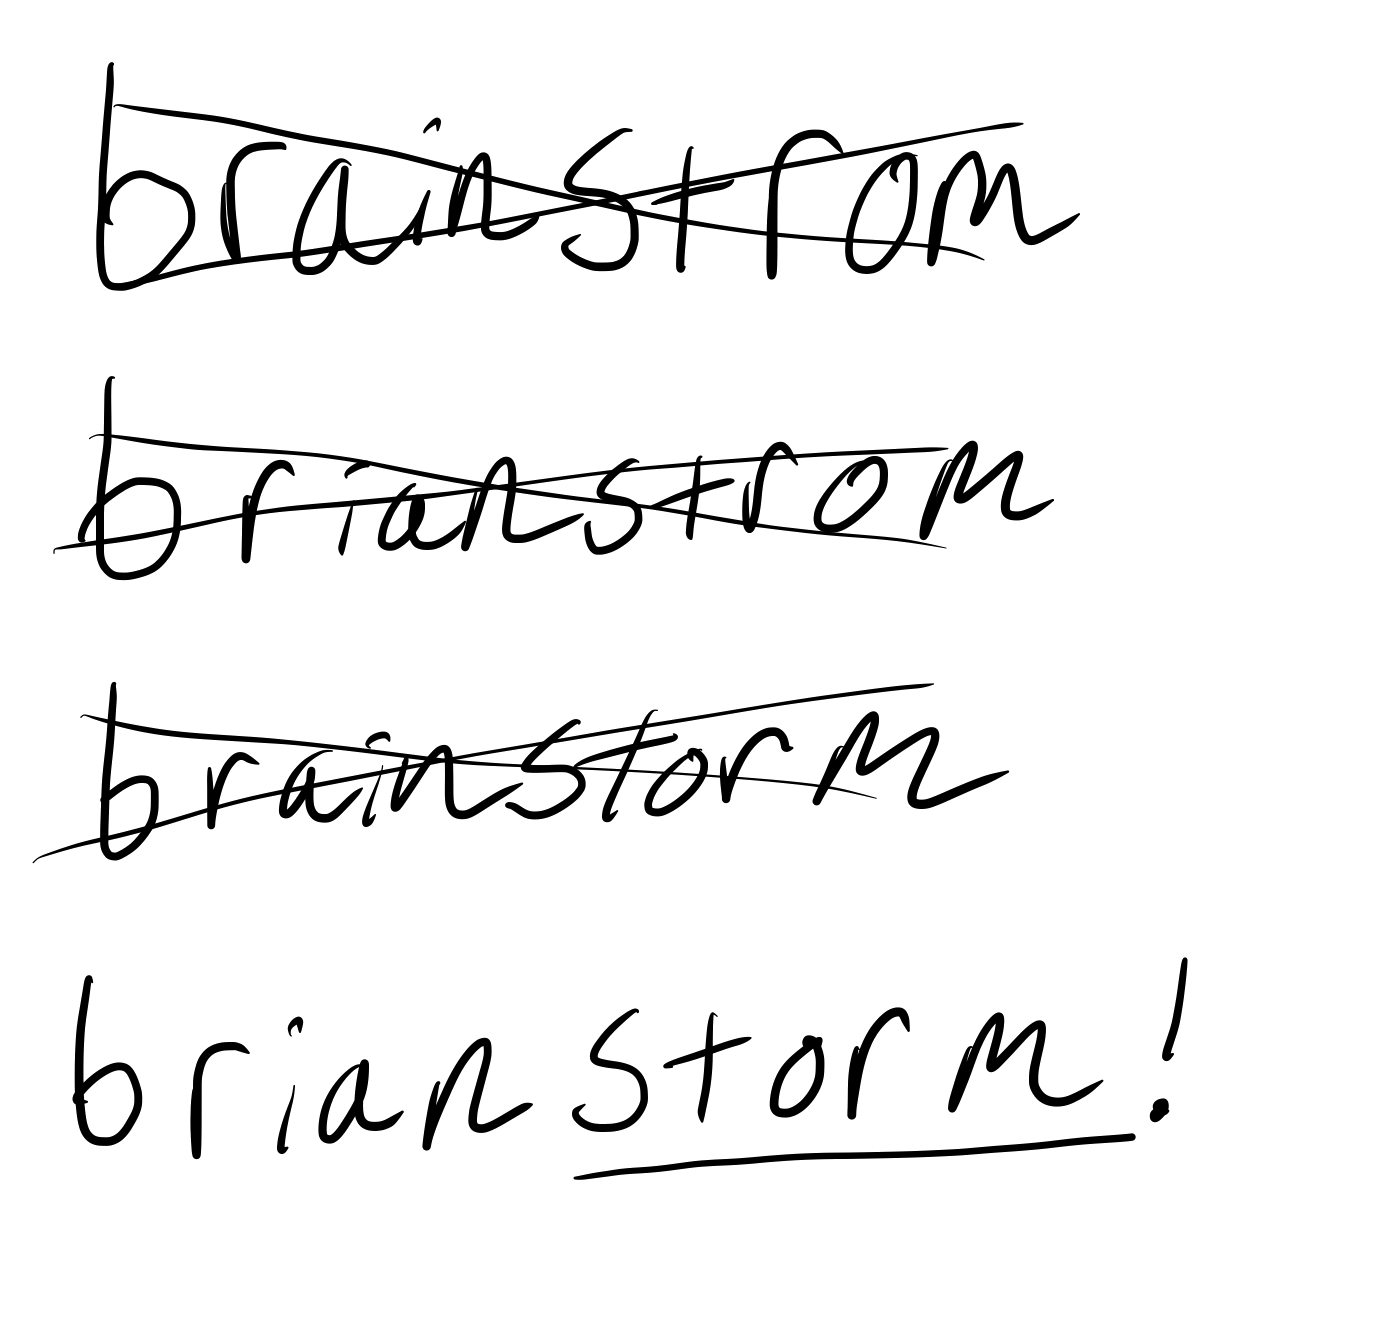 brainstrom
brianstrom
brainstorm
brianstorm!